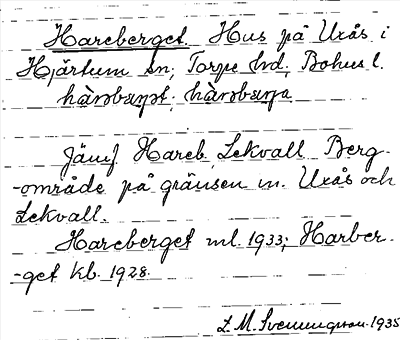 Hareberget. Hus på Uxås i
Hjärtum sn, Torpe hd, Bohusl.
hàrəbærjət, hàrəbærja
Jämf. Hareb. Lekvall. Berg-
-område på gränsen m. Uxås och
Lekvall.
Hareberget ml. 1933; Harber-
-get kb. 1928.
L.M. Svenungsson. 1935